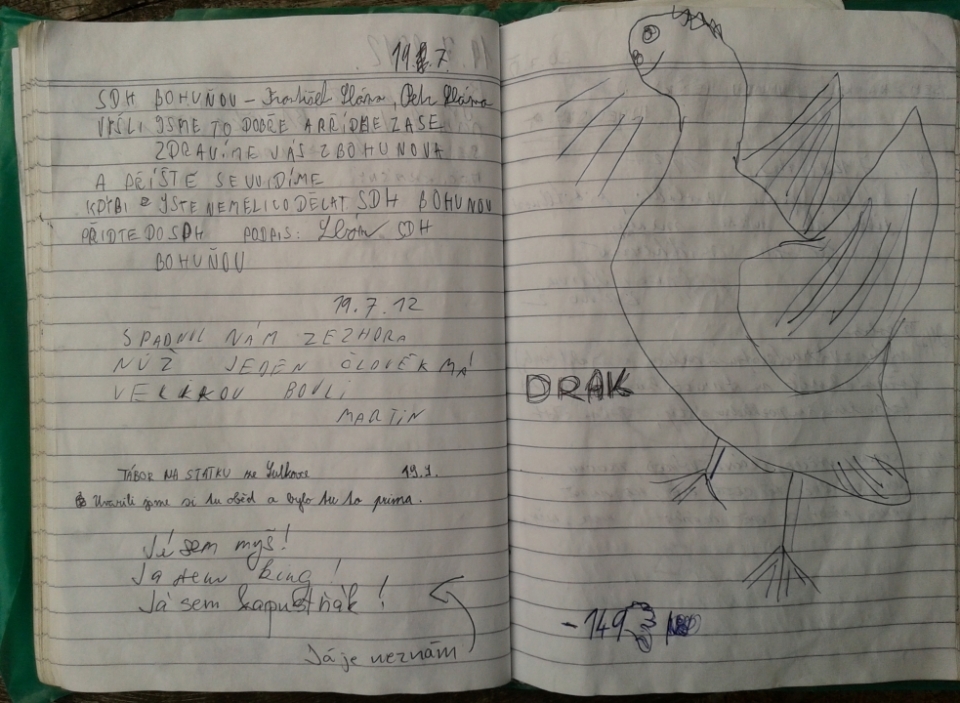 19.7.
SDH BOHUŇOV – František Sláma, Petr Sláma
VYŠLI JSME TO DOBŘE A PŘÍDME ZASE
ZDRAVÍME VÁS Z BOHUNOVA
A PŘÍŠTE SE UVIDÍME
KDYBI JSTE NEMĚLI CO DĚLAT SDH BOHUNOU
PŘIDTE DO SDH PODPIS: Sláma SDH
BOHUŇOU
19.7.12
SPADNUL NÁM ZEZHORA
NŮŽ JEDEN ČLOVĚK MÁ
VELIKOU BOULI
MARTIN
TÁBOR NA STATKU ve Sulkovci 19.7.
Uvařili jsme si tu oběd a bylo tu to prima.
Já sem myš!
Ja sem king!
Já sem kapustňák!
Já je neznám
DRAK
-149